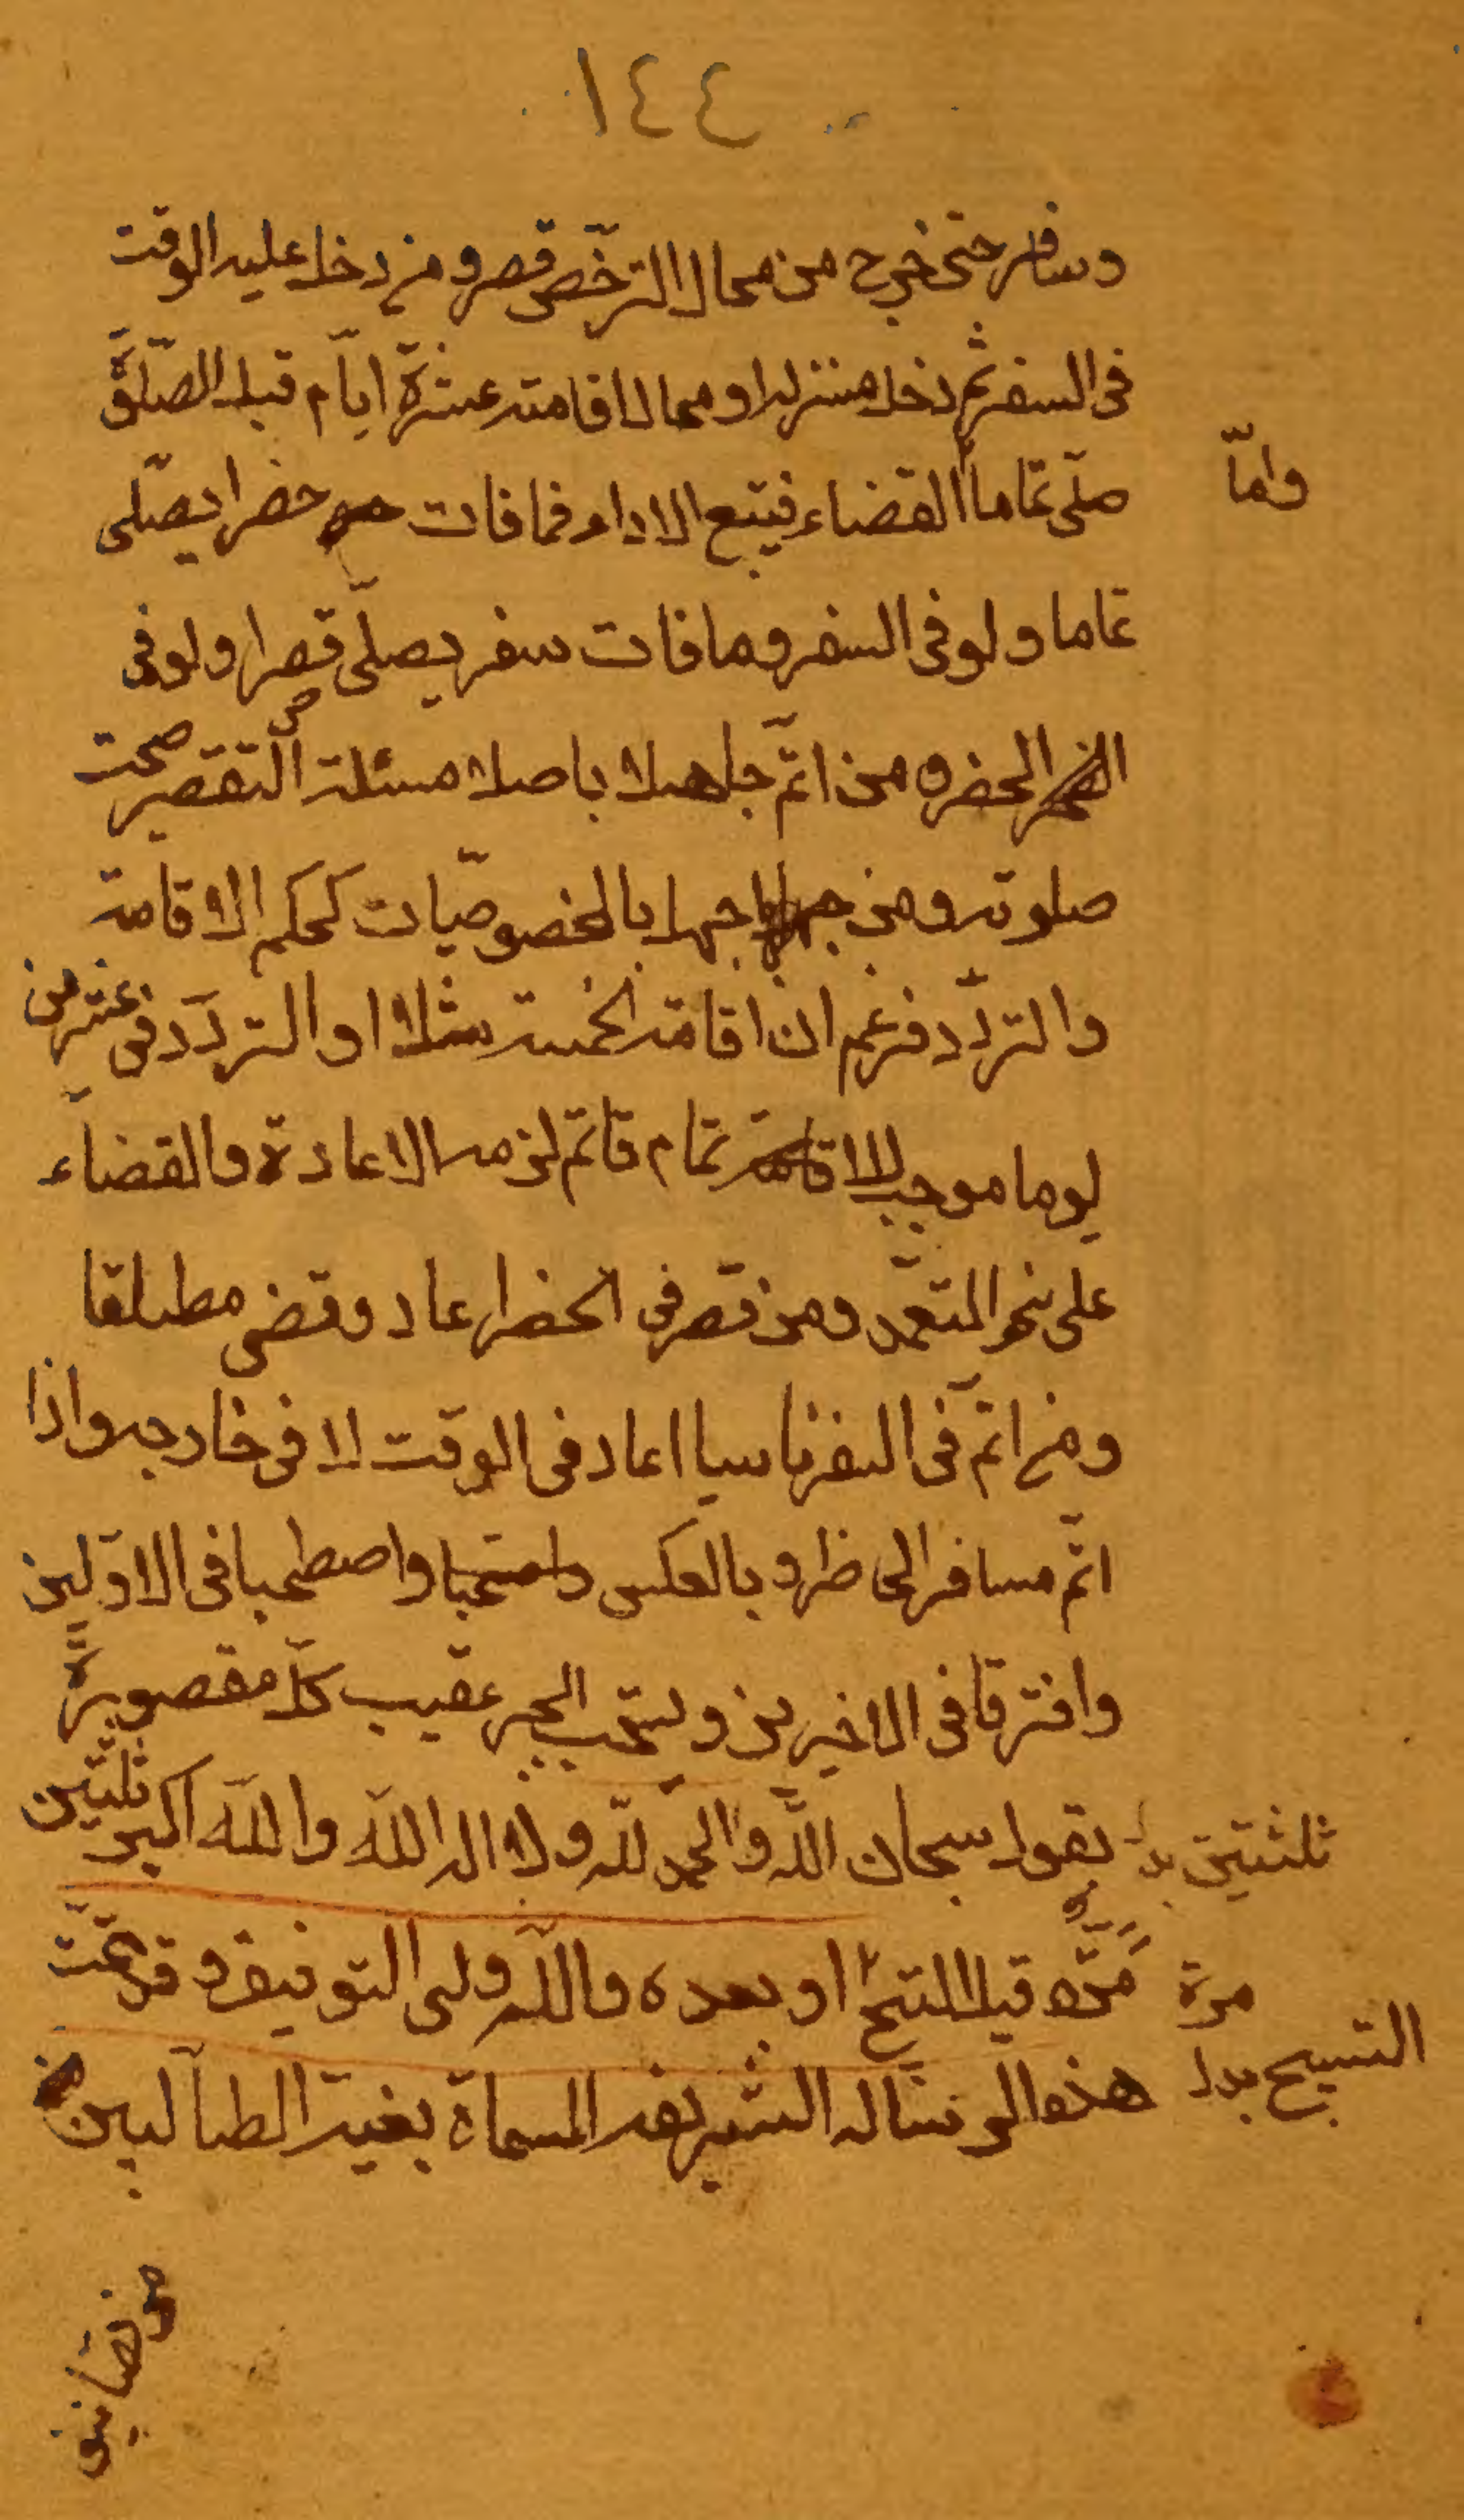 ١٤٤
وسافر حتى خرج من محال الترخّص قصر ومن دخل عليه الوقت
فى السفر ثم دخل منزله او محال اقامته عشرة ايّام قبل الصّلوة
صلّى تماما القضاء فيتبع الاداء فما فات حضرا يصلّى
وامّا
تماما ولو فى السفر وما فات سفر يصلّى قصرا ولو فى
الحضر ومن اتمّ جاهلا باصل مسئلة التقصير صحت
صلوته ومن جهل بالخصوصيّات كحكم الاقامة
والتردّد فزعم ان اقامة الخمسة مثلا او التردّد فى عشرين
يوما موجب تمام فاتم لزمه الاعادة والقضاء
على نحو المتعمّد ومن قصر فى الحضر اعاد وقضى مطلقا
ومن اتمّ فى السفر ناسيا اعاد فى الوقت لا فى خارجه واذا
اتمّ مسافر الى طرو بالعكس واصطحبا فى الاوّلين
وافترقا فى الاخيرين ويستحب الجبر عقيب كلّ مقصورة
بقول سبحان اللّه والحمد للّه ولا اله الا اللّه واللّه اكبر ثلثين
ثلثتين بد
مرّة قبل التسبيح او بعده واللّه ولى التوفيق وقد تمّت
مرة
التسبيح بدل
هذه الرسالة الشريفة المسماة بغية الطالبين
من تصانيف